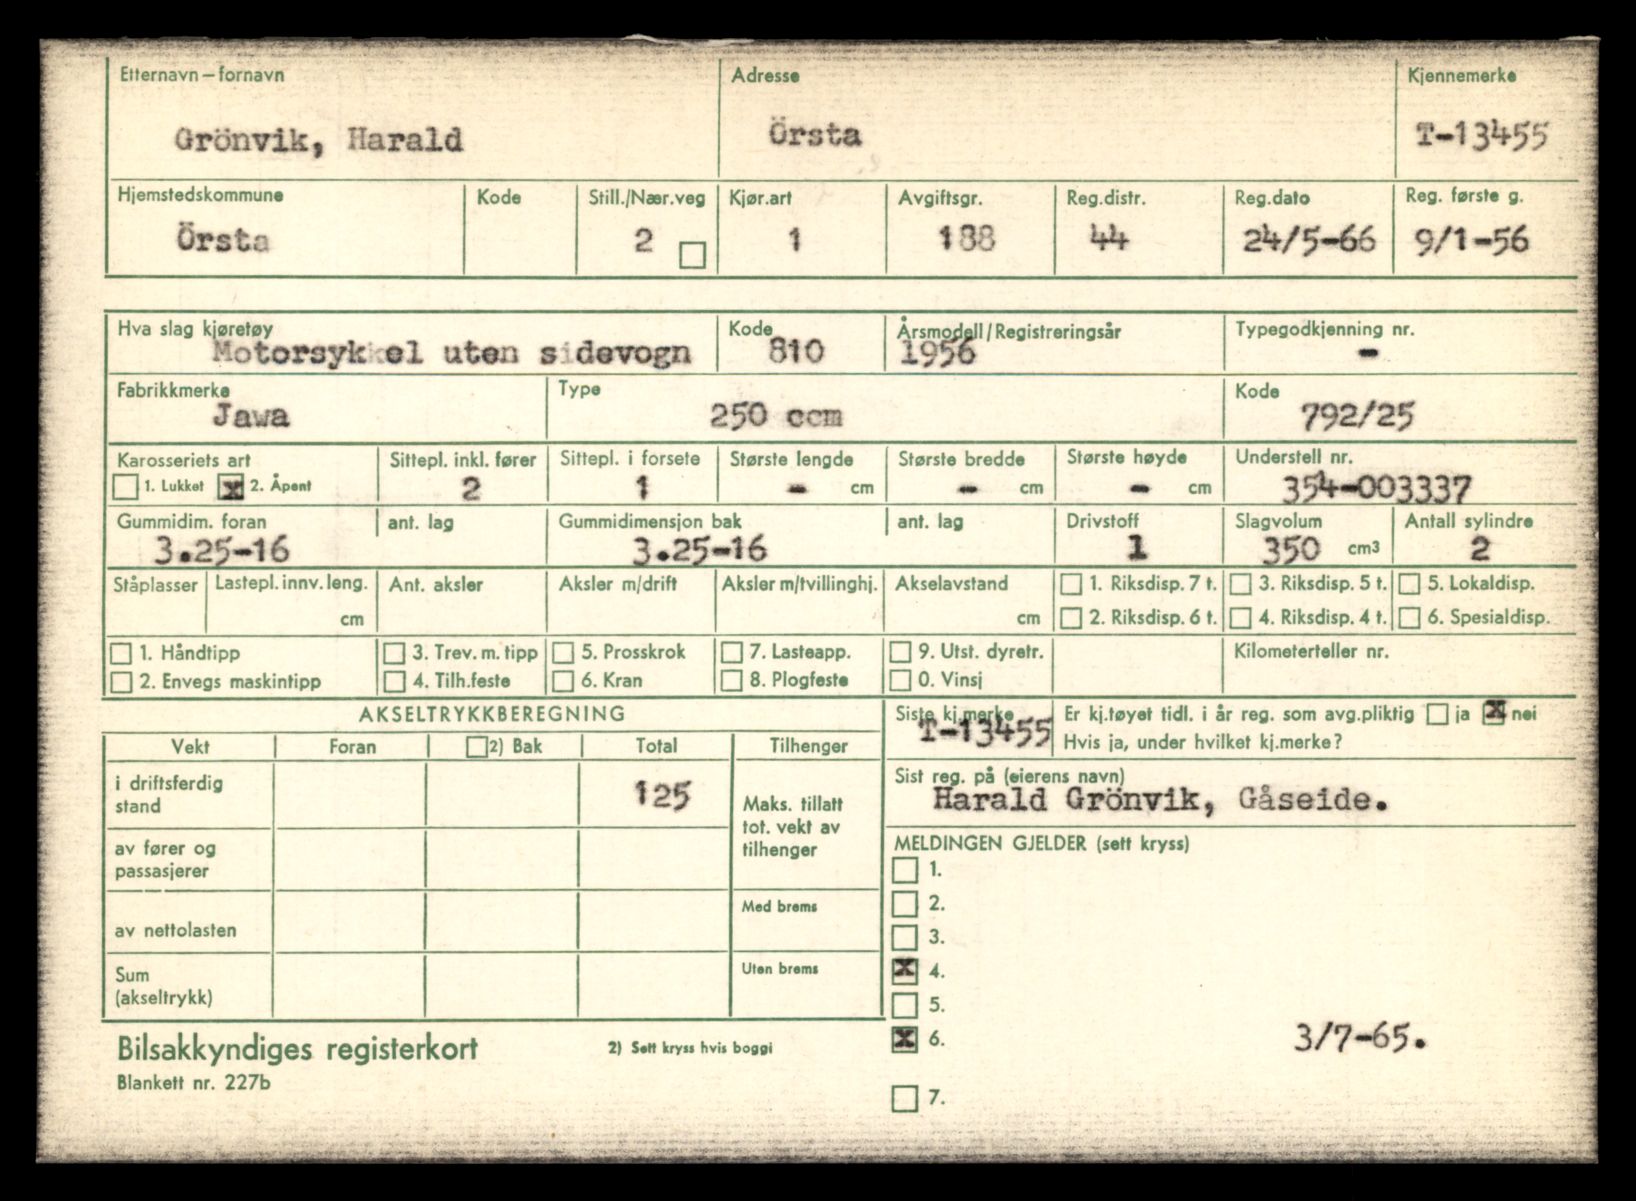 Etternavn – fornavn Adresse Kjennemerke
Grönvik, Harald Örsta T-13455
Hjemstedskommune Kode Still./Nær.veg Kjør.art Avgiftsgr. Reg.distr. Reg.dato Reg. første g.
Örsta 2 1 188 44 24/5-66 9/1-56
Hva slag kjøretøy Kode Årsmodell/Registreringsår Typegodkjenning nr.
Motorsykkel uten sidevogn 810 1956 -
Fabrikkmerke Type Kode
Jawa 250 ccm 792/25
Karosseriets art Sittepl. inkl. fører Sittepl. i forsete Største lengde Største bredde Største høyde Understell nr.
1. Lukket x 2. Åpent 2 1 - cm - cm - cm 354-003337
Gummidim. foran ant. lag Gummidimensjon bak ant. lag Drivstoff Slagvolum Antall sylindre
3.25-16 3.25-16 1 350 cm3 2
Ståplasser Lastepl. innv. leng. Ant. aksler Aksler m/drift Aksler m/tvillinghj. Akselavstand 1. Riksdisp. 7 t. 3. Riksdisp. 5 t. 5. Lokaldisp.
cm cm 2. Riksdisp. 6 t. 4. Riksdisp. 4 t. 6. Spesialdisp.
1. Håndtipp 3. Trev. m. tipp 5. Prosskrok 7. Lasteapp. 9. Utst. dyretr. Kilometerteller nr.
2. Envegs maskintipp 4. Tilh.feste 6. Kran 8. Plogfeste 0. Vinsj
AKSELTRYKKBEREGNING Siste kj.merke Er kj.tøyet tidl. i år reg. som avg.pliktig ja x nei
T-13455 Hvis ja, under hvilket kj.merke?
Vekt Foran 2) Bak Total Tilhenger
Sist reg. på (eierens navn)
Harald Grönvik, Gåseide.
i driftsferdig
stand 125
Maks. tillatt
tot. vekt av
tilhenger
MELDINGEN GJELDER (sett kryss)
av fører og
passasjerer
1.
2.
Med brems
av nettolasten
3.
x 4.
Uten brems
Sum
(akseltrykk)
5.
x 6. 3/7-65.
Bilsakkyndiges registerkort 2) Sett kryss hvis boggi
Blankett nr. 227b
7.